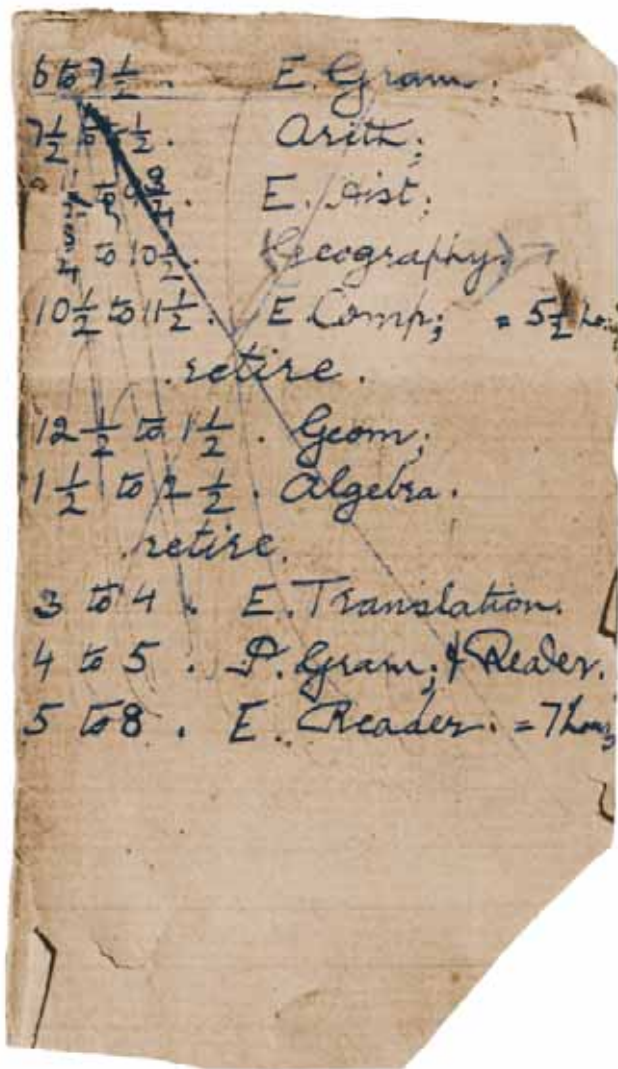 6 to 7 1/2 . E. Gram.
7 1/2 to 1/2 . Arith;
to 9 3/4 . E. Hist;
3/4 to 10 1/2 . (Geography.)
10 1/2 to 11 1/2 . E. Comp; = 5 1/2
retire .
12 1/2 to 1 1/2 . Geom;
1 1/2 to 2 1/2 . Algebra .
retire .
3 to 4 . E. Translation.
4 to 5 . P. Gram; & Reader.
5 to 8 . E. Reader. = 7 hours